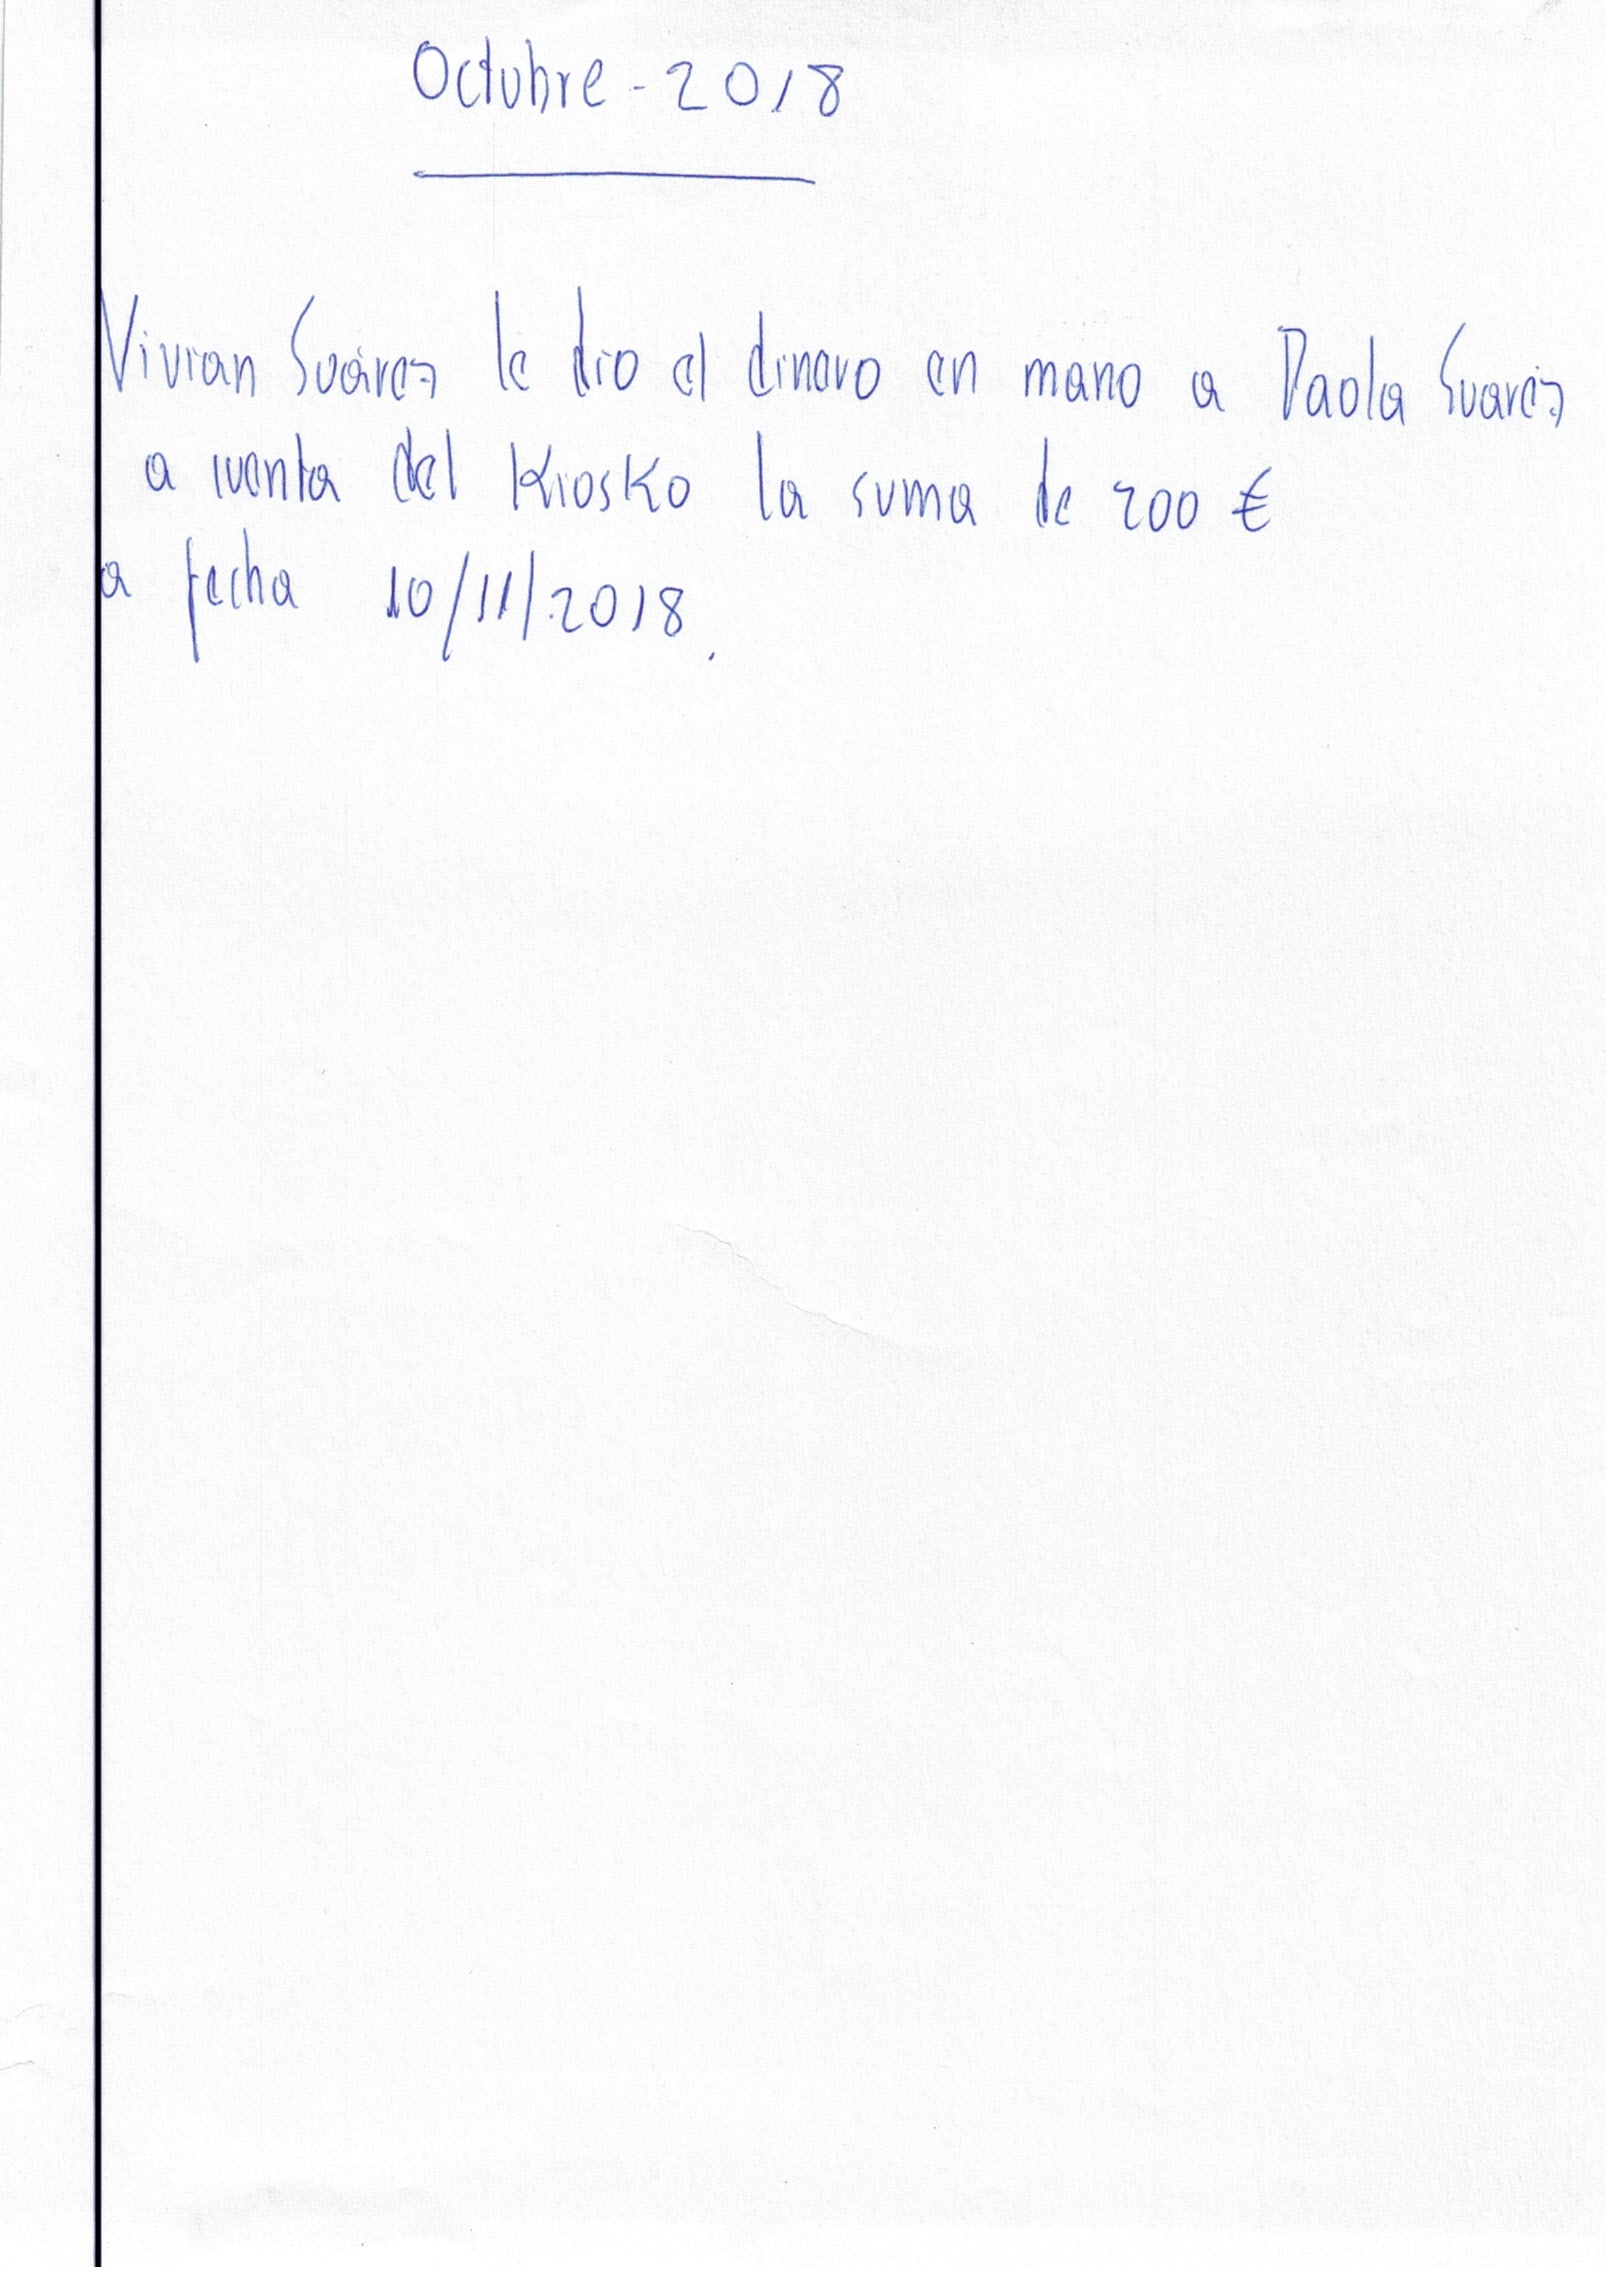 Octubre - 2018
Vivian Suárez le dio el dinero en mano a Paola Suaréz
a cuenta del Kiosko la suma de 200 €
a fecha 10/11/2018.